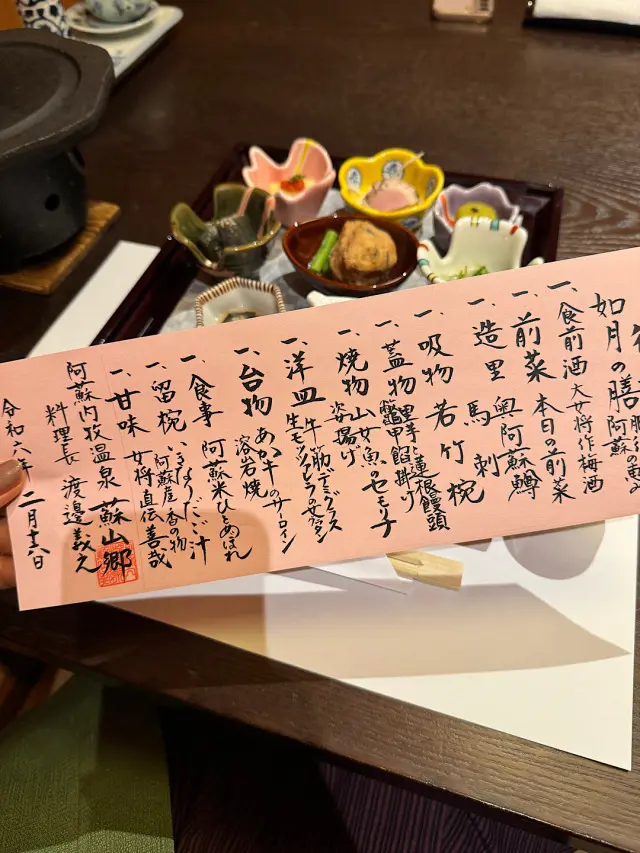 如月の膳
阿蘇の
一、食前酒 大女将作梅酒
一、前菜 本日の前菜
一、造里 馬刺
奥阿蘇鱒
一、吸物 若竹椀
一、蓋物 蓮根饅頭
鼈甲餡掛け
一、焼物 山女魚のセミリ子
姿揚げ
一、洋皿 牛筋デミグラス
生モッツァレラの
一、台物 あか牛のサーロイン
溶岩焼
一、食事 阿蘇米ひとめぼれ
一、留椀 だご汁
阿蘇産香の物
一、甘味 女将自伝善哉
阿蘇内牧温泉 蘇山郷
料理長 渡邊義之
令和六年 二月十六日